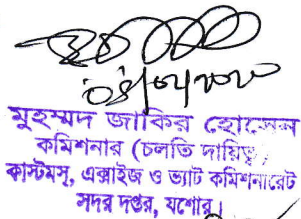 মুহম্মদ জাকির হোসেন
কমিশনার (চলতি দায়িত্ব)
কাস্টমস্, এক্সাইজ ও ভ্যাট কমিশনারেট
সদর দপ্তর, যশোর।